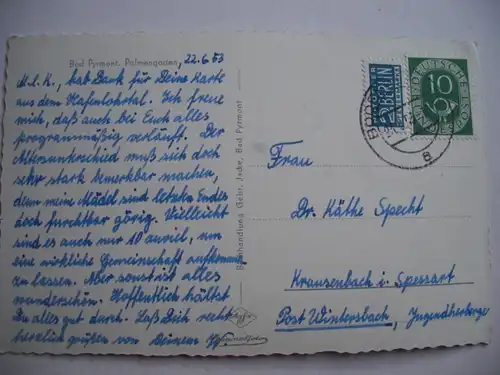 Bad Pyrmont, Palmengarten, 22.6.53
M.l.K., hab Dank für Deine Karte
aus dem Hafenlohrtal. Ich freue
mich, daß auch bei Euch alles
programmäßig verläuft. Der
Altersunterschied muß sich doch
sehr stark bemerkbar machen,
denn meine Mädel sind letzten Endes
doch furchtbar görig. Vielleicht
sind es auch nur 10 zuviel, um
eine wirkliche Gemeinschaft aufkommen
zu lassen. Aber sonst ist alles
wunderschön. Hoffentlich hältst
Du alles gut durch. Laß Dich recht
herzlich grüßen von Deinem
Buchhandlung Gebr. Jacke, Bad Pyrmont
NOTOPFER
2 BERLIN
STEUERMARKE
DEUTSCHE POST
10
a
Frau
Dr. Käthe Specht
Krausenbach i. Spessart
Post Wintersbach, Jugendherberge